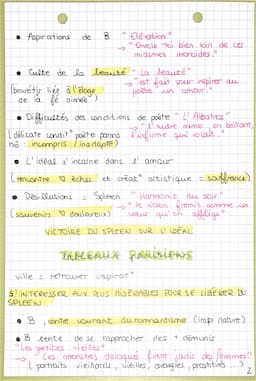 • Aspirations de B "Elévation"
→ "Envole toi bien loin de ces
miasmes morbides"
• Culte de la beauté "La beauté"
→ "est fait pour inspirer au
poète un amour"
(beauté liée à l'éloge
de la fê aimée)
• Difficultés des conditions de poète "L'Albatros"
→ "L'autre mime, en boitant,
l'infirme qui volait"
(délicate condit° poète parmi
hô : incompris / inadapté)
• L'idéal s'incarne dans l'amour
(rencontre ♡ échec et créat° artistique = souffrance)
• Désillusions = Spleen "Harmonie du soir"
→ "le violon frémit comme un
coeur qu'on afflige"
(souvenirs ♡ douloureux)
VICTOIRE DU SPLEEN SUR L'IDÉAL
TABLEAUX PARISIENS
ville = retrouver inspirat°
S'INTERESSER AUX PLUS MISÉRABLES POUR SE LIBÉRER DU
SPLEEN :
• B, contre courant du romantisme (inspi nature)
• B tente de se rapprocher des + démunis
"Les petites vieilles"
→ "Ces monstres disloqués furent jadis des femmes"
(portraits vieillards, vieilles, aveugles, prostituées ...)
2